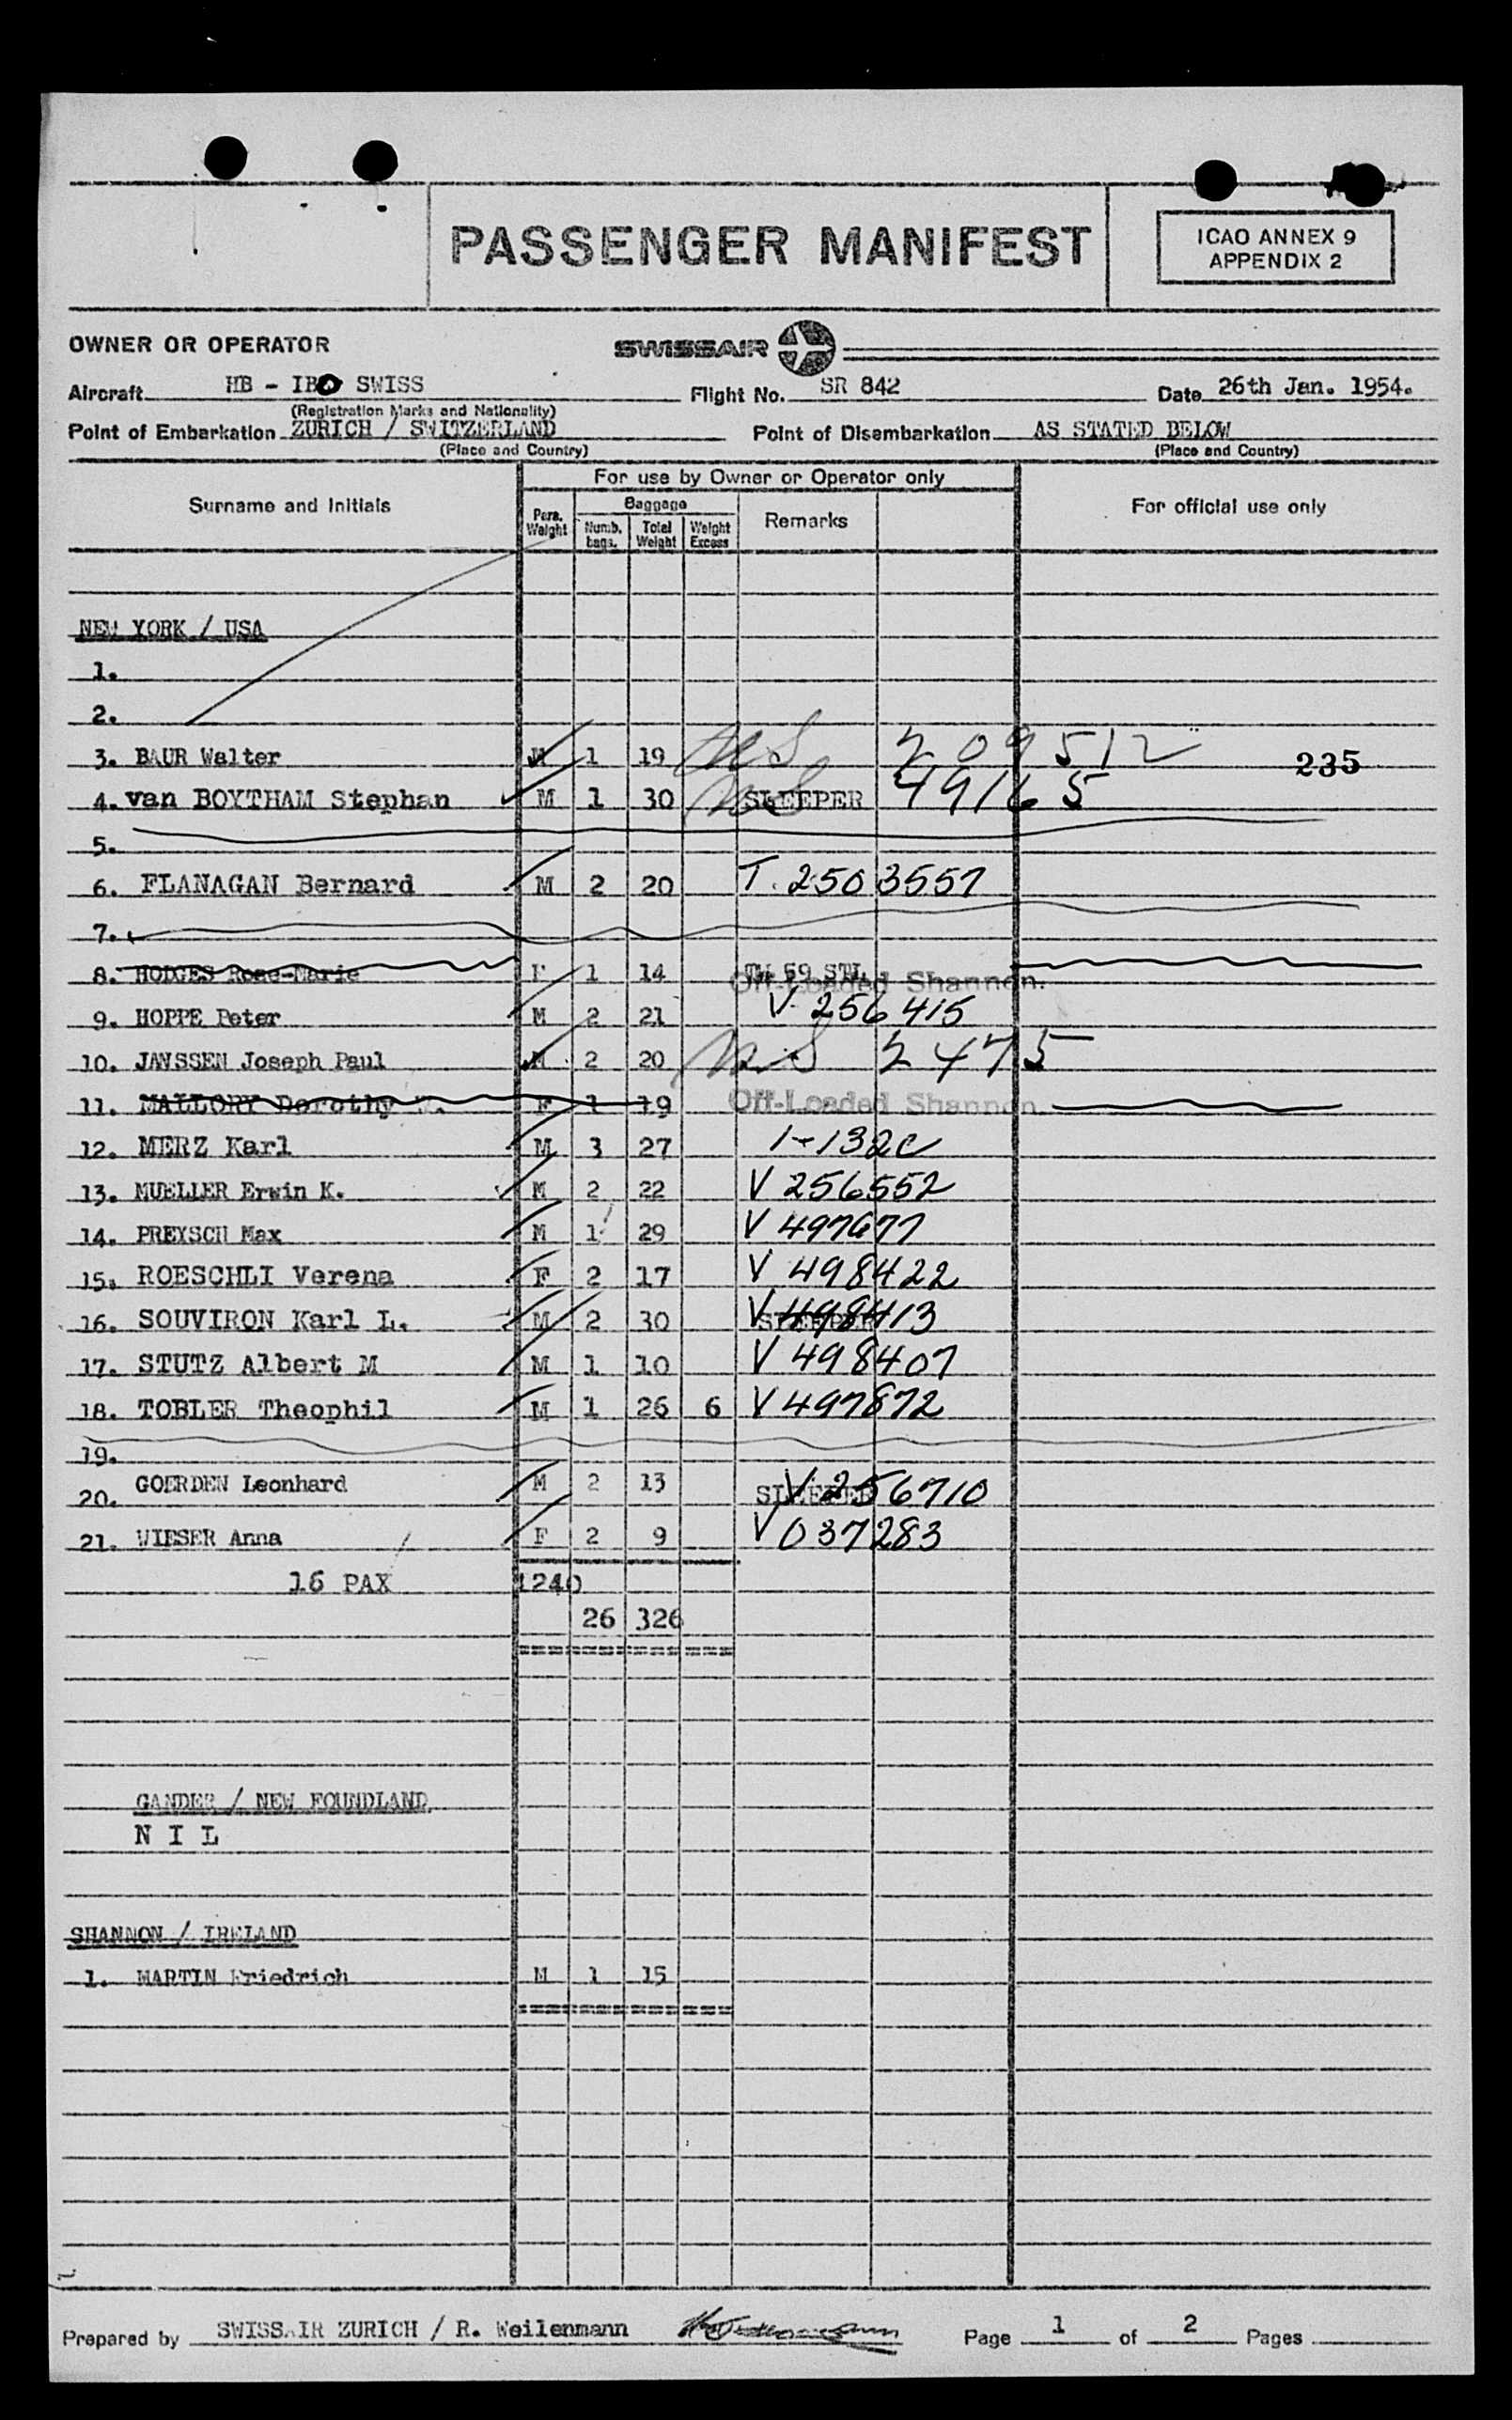 PASSENGER MANIFEST
ICAO ANNEX 9
APPENDIX 2
OWNER OR OPERATOR SWISSAIR
Aircraft HB - IBO SWISS Flight No. SR 842 Date 26th Jan. 1954.
(Registration Marks and Nationality)
Point of Embarkation ZURICH / SWITZERLAND Point of Disembarkation AS STATED BELOW
(Place and Country) (Place and Country)
For use by Owner or Operator only
Surname and Initials Pers. Weight Baggage Numb. bags. Total Weight Weight Excess Remarks For official use only
NEW YORK / USA
1.
2.
3. BAUR Walter M 1 19 US 209512 235
4. van BOYTHAM Stephan M 1 30 US SLEEPER 49165
5.
6. FLANAGAN Bernard M 2 20 T. 2503557
7.
8. HODGES Rose-Marie F 1 14 TW 69 STL Off-Loaded Shannon.
9. HOPPE Peter M 2 21 V 256415
10. JANSSEN Joseph Paul M 2 20 US 2475
11. MALLORY Dorothy F 1 19 Off-Loaded Shannon
12. MERZ Karl M 3 27 1-132C
13. MUELLER Erwin K. M 2 22 V 256552
14. PREYSCH Max M 1 29 V 497677
15. ROESCHLI Verena F 2 17 V 498422
16. SOUVIRON Karl L. M 2 30 SLEEPER V 498413
17. STUTZ Albert M M 1 10 V 498407
18. TOBLER Theophil M 1 26 6 V 497872
19.
20. GOERDEN Leonhard M 2 13 SLEEPER V 256710
21. WIESER Anna F 2 9 V 037283
16 PAX 1240
26 326
GANDER / NEW FOUNDLAND
N I L
SHANNON / IRELAND
1. MARTIN Friedrich M 1 15
Prepared by SWISSAIR ZURICH / R. Weilenmann Page 1 of 2 Pages